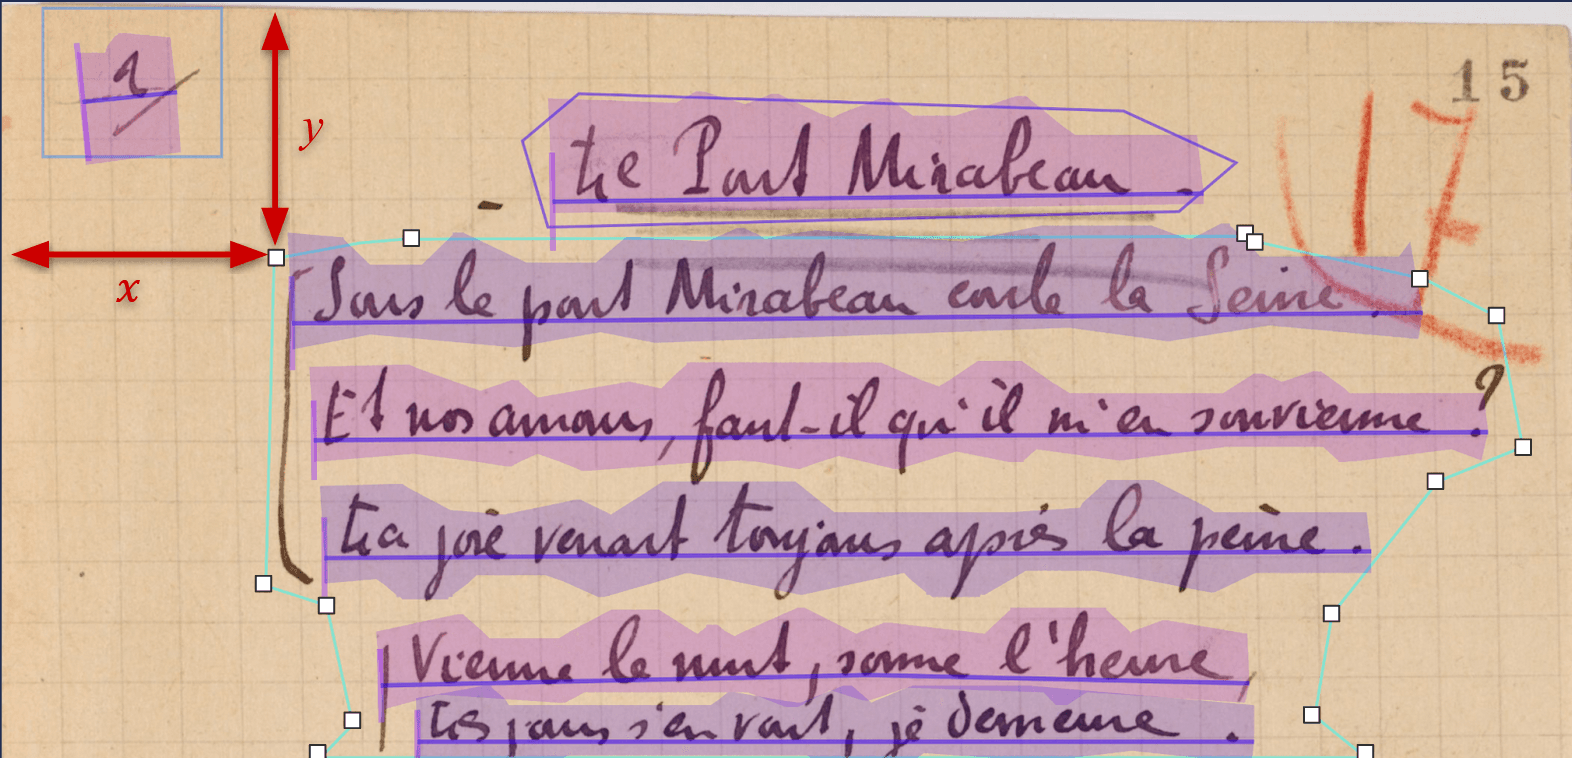 y
15
17
Le Pont Mirabeau .
x
Sous le pont Mirabeau coule la Seine .
Et nos amours, faut-il qu'il m'en souvienne ?
La joie venait toujours après la peine .
Vienne la nuit, sonne l'heure,
Les jours s'en vont, je demeure .